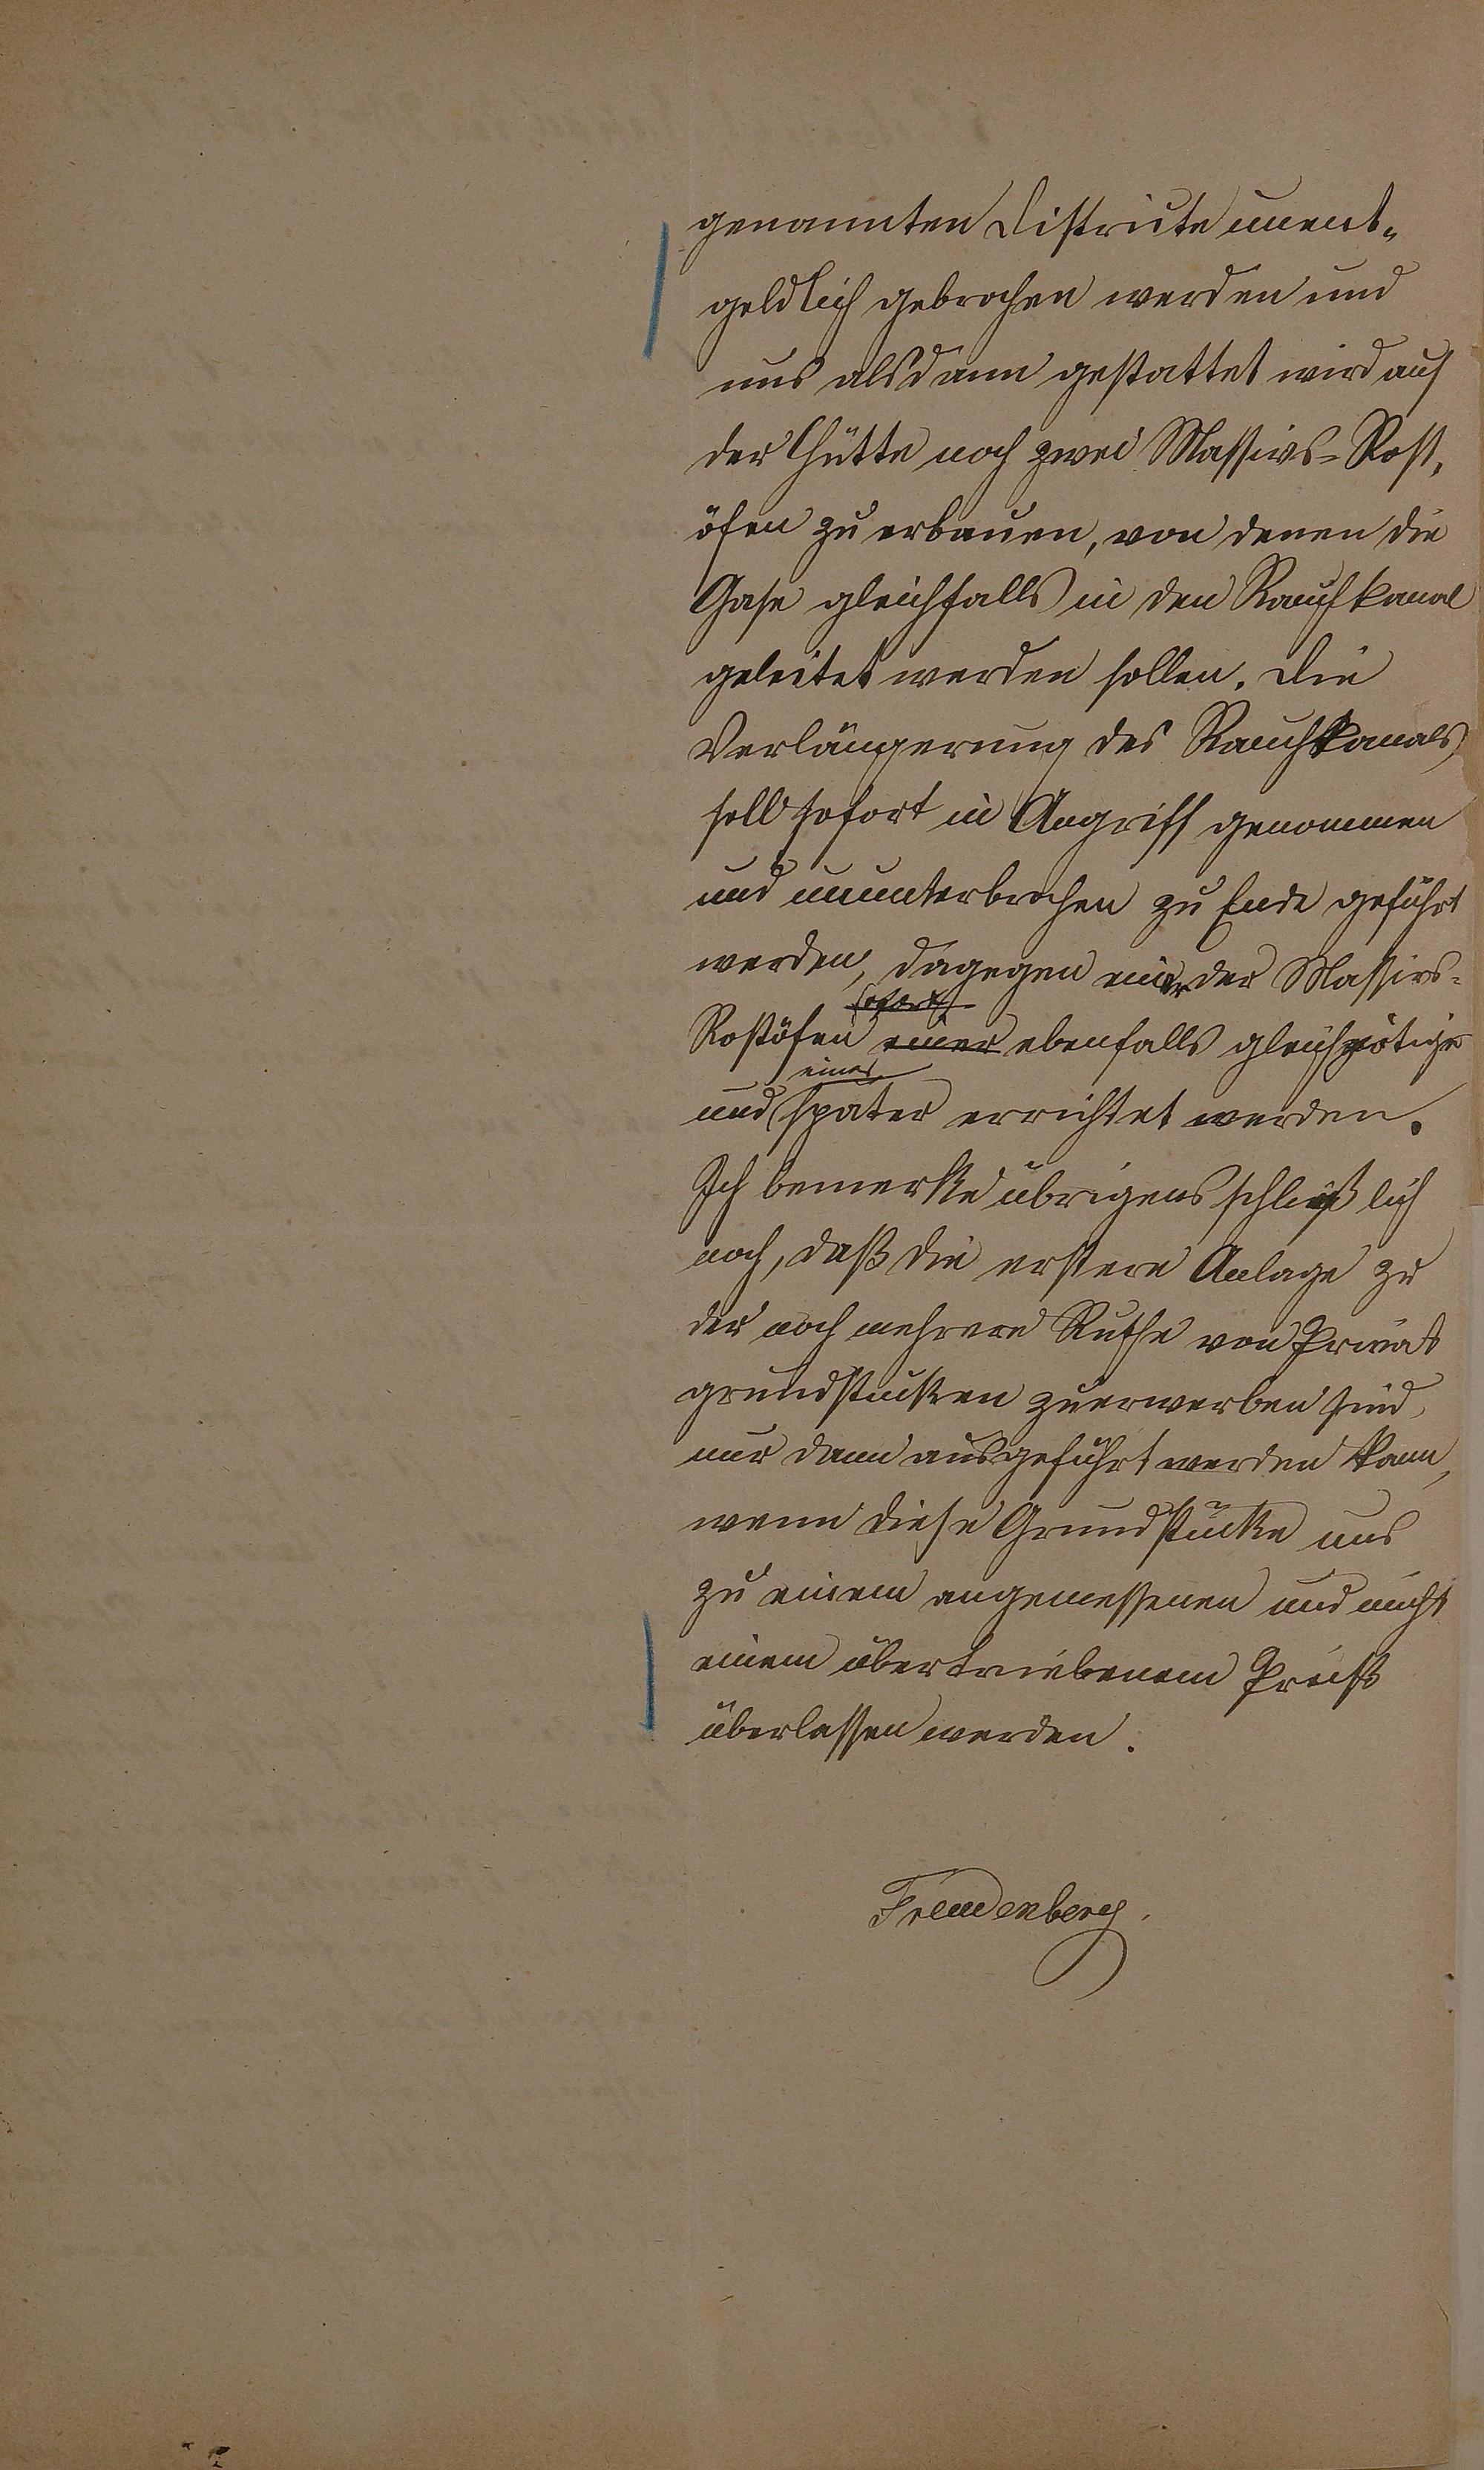 genannten Distrikte unent-
geldlich gebrochen werden und
uns alsdann gestattet wird auf
der Hütte noch zwei Massivs-Rost-
öfen zu erbauen, von denen die
Gase gleichfalls in den Rauchkanal
geleitet werden sollen. Die
Verlängerung des Rauchkanals
soll sofort in Angriff genommen
und ununterbrochen zu Ende geführt
werden, dagegen einer der Massivs-
sofort
Rostöfen einer ebenfalls gleichzeitig
einer
und später errichtet werden.
Ich bemerke übrigens schließlich
noch, daß die erstere Anlage zu
der noch mehrere Ruthe von Privat
grundstücken zu erwerben sind,
nur dann ausgeführt werden kann,
wenn diese Grundstücke uns
zu einem angemessenen und nicht
einem übertriebenem Preise
überlassen werden.
Freudenberg.